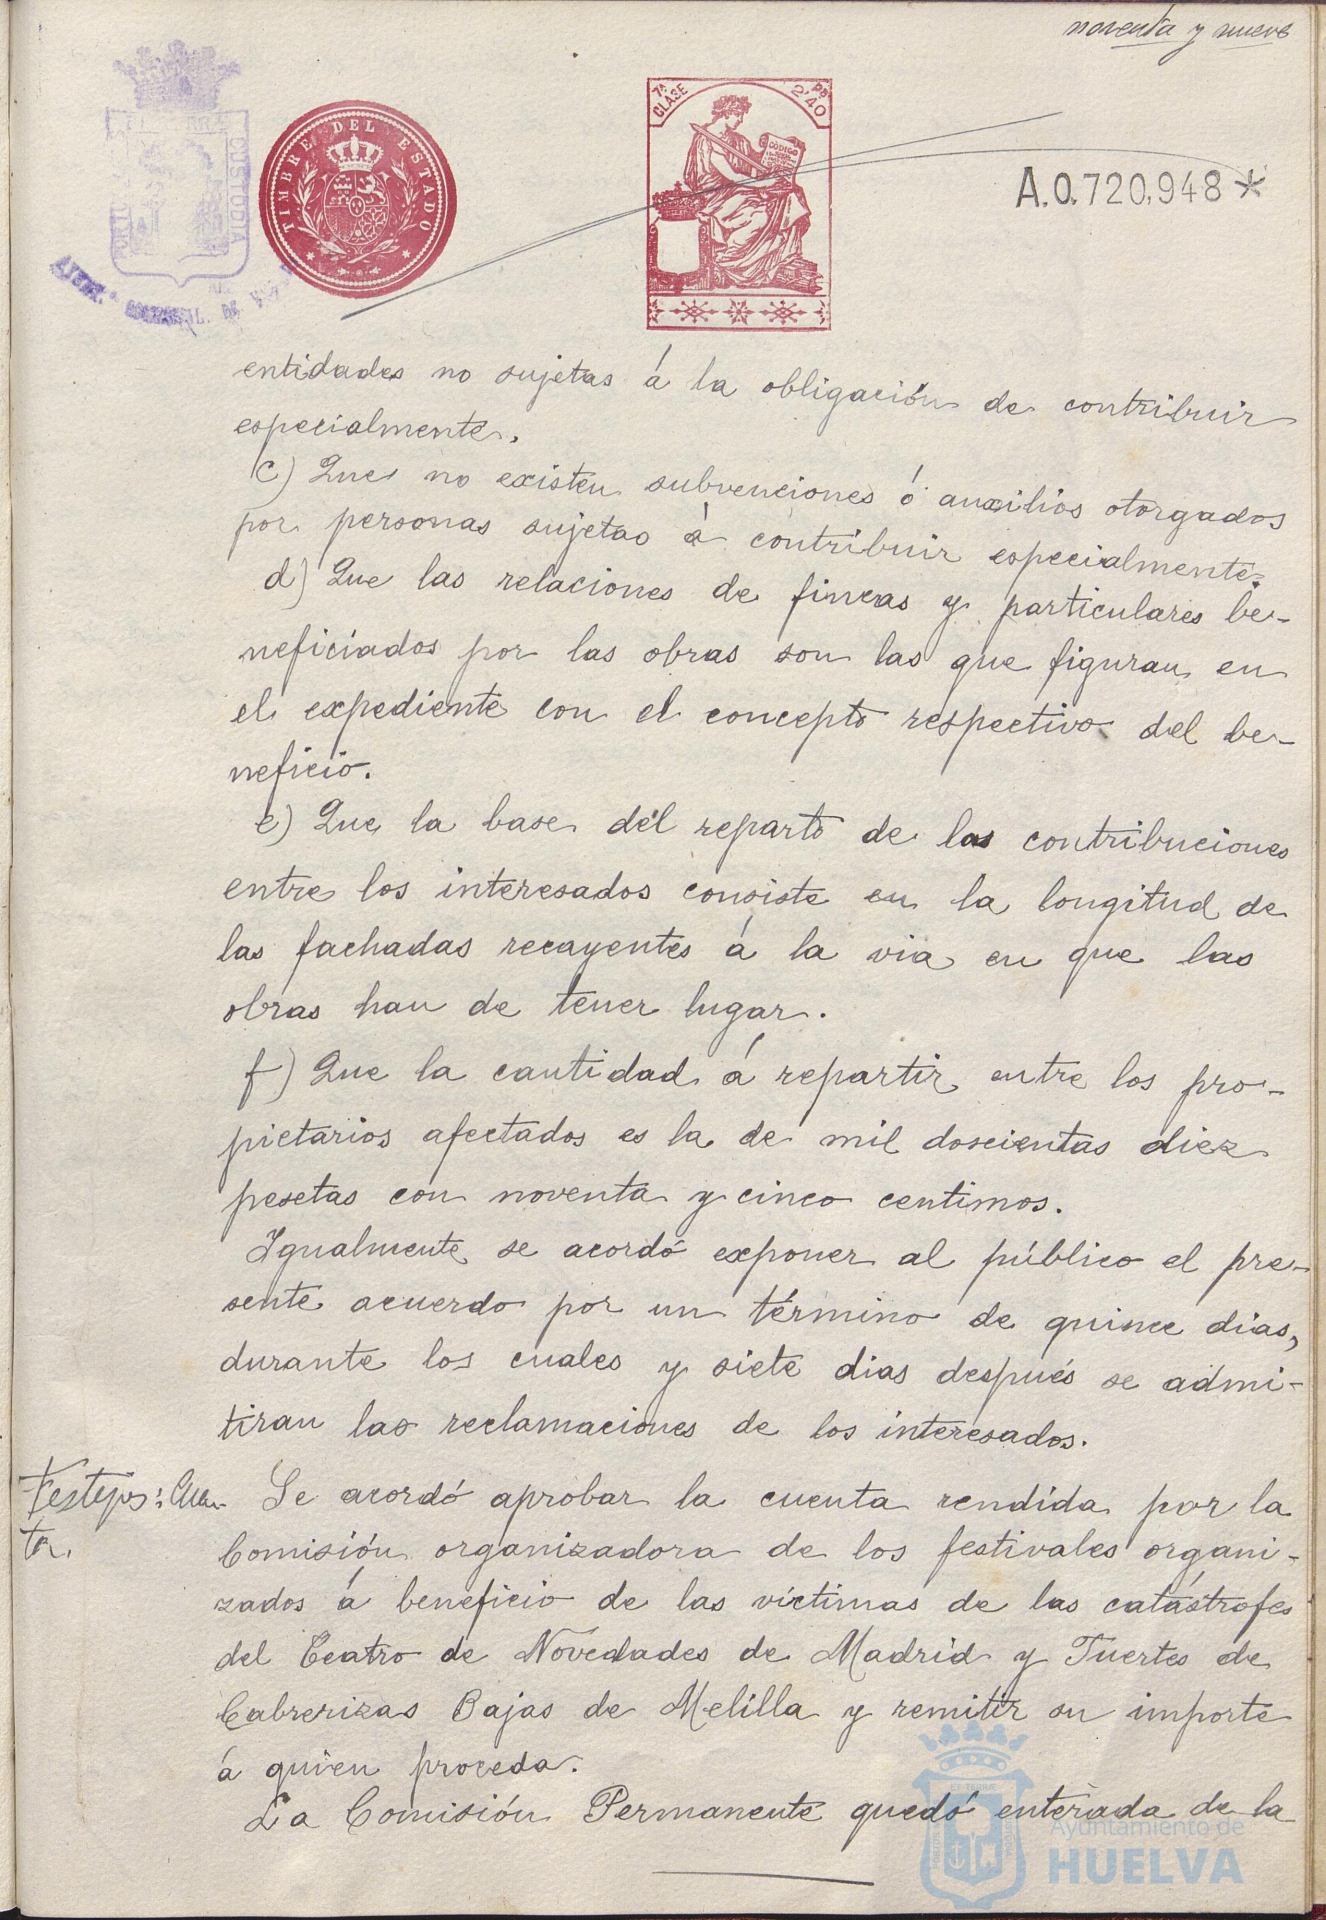 noventa y nueve
TIMBRE DEL ESTADO
7ª CLASE
2'40
CODIGO
A.0.720,948*
CUSTODIA
entidades no sujetas á la obligación de contribuir
especialmente.
c) Que no existen subvenciones ó auxilios otorgados
por personas sujetas á contribuir especialmente.
d) Que las relaciones de fincas y particulares be-
neficiados por las obras son las que figuran en
el expediente con el concepto respectivo del be-
neficio.
e) Que la base del reparto de las contribuciones
entre los interesados consiste en la longitud de
las fachadas recayentes á la via en que las
obras han de tener lugar.
f) Que la cantidad á repartir entre los pro-
pietarios afectados es la de mil doscientas diez
pesetas con noventa y cinco centimos.
Igualmente se acordó exponer al público el pre-
sente acuerdo por un término de quince dias,
durante los cuales y siete dias después se admi-
tiran las reclamaciones de los interesados.
Festejos: Cuen-
ta.
Se acordó aprobar la cuenta rendida por la
Comisión organizadora de los festivales organi-
zados á beneficio de las víctimas de las catástrofes
del Teatro de Novedades de Madrid y Fuertes de
Cabrerizas Bajas de Melilla y remitir su importe
á quien proceda.
La Comisión Permanente quedó enterada de la
Ayuntamiento de
HUELVA